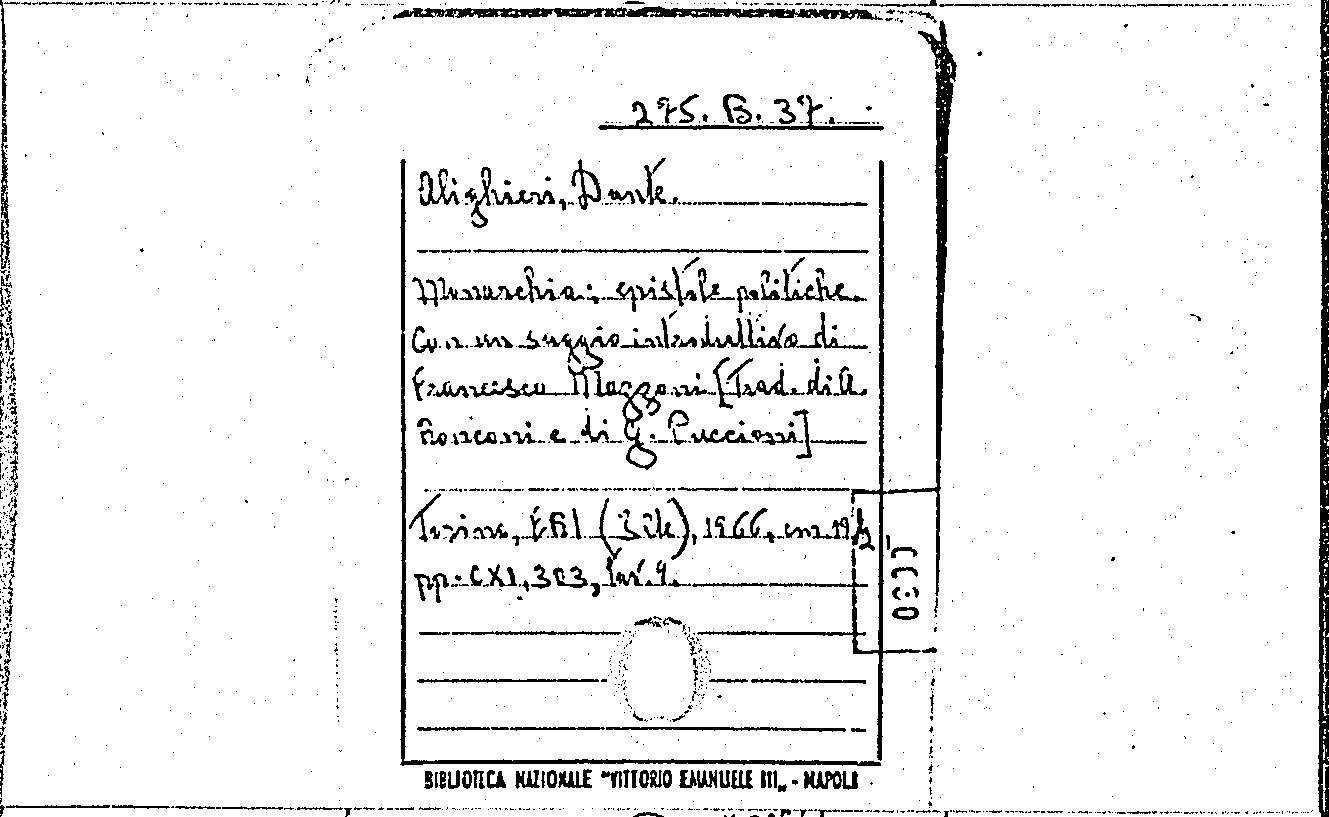 275. B. 37.
Alighieri, Dante.
Monarchia; epistole politiche.
Con un saggio introduttivo di
Francesco Mazzoni [Trad. di A.
Ronconi e di G. Puccioni]
Torino, ERI (3 ile), 1966, cm. 19 1/2,
pp. CXI, 303, tav. 9.
BIBLIOTECA NAZIONALE "VITTORIO EMANUELE III„ - NAPOLI